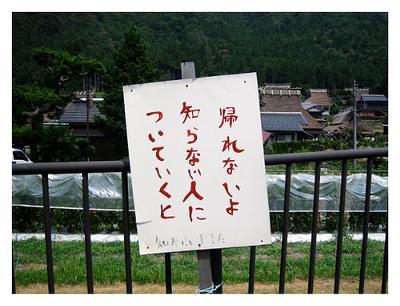 帰れないよ
知らない人に
ついていくと